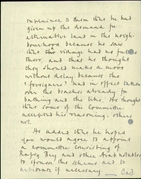 explained to them that he had
given up the demand for
alternative land in the neigh-
bourhood because he saw
that the village had no future
there, and that he thought
they should make a move
without delay because the
"foreigners" had in effect taken
over the beaches already for
bathing and the like. He thought
that some of the Committee
accepted his reasoning, others
not.
He added that he hoped
you would agree to appoint
a committee consisting of
and other Arab notables
to frame the scheme and to
supervise if necessary